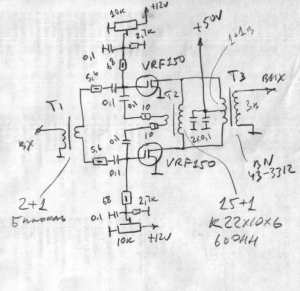 10K +12V
0,1 2,7K
+50V
68 VRF150
1+1в
5,6 T2 T3 ВЫХ
T1 0,1 0,1
10
3в
ВХ 0,1 10
2x0,1
5,6 0,1
VRF150
BN
43-3312
2+1
68 2,7K
15+1
0,1
К22х10х6
10K +12V
600НН